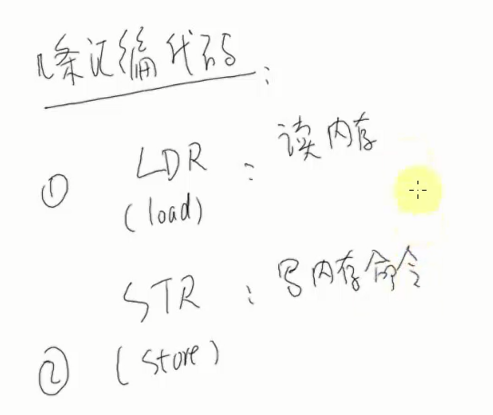 几条汇编代码:
① LDR : 读内存
(load)
STR : 写内存命令
② (store)